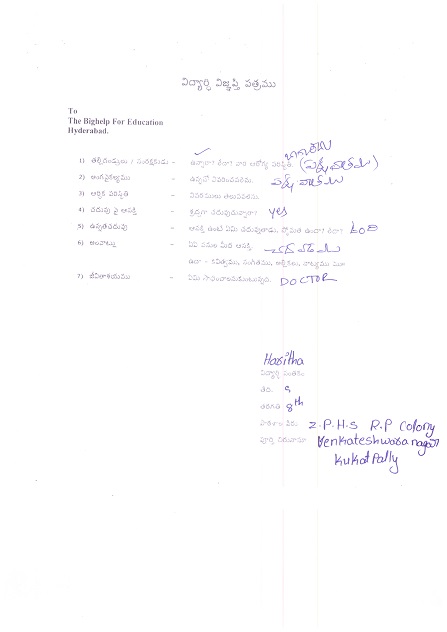 విద్యార్థి విజ్ఞప్తి పత్రము
To
The Bighelp For Education
Hyderabad.
1) తల్లిదండ్రులు / సంరక్షకుడు - ఉన్నారా? లేదా? వారి ఆరోగ్య పరిస్థితి.
2) అంగవైకల్యము - ఉన్నచో వివరించవలెను.
3) ఆర్థిక పరిస్థితి - వివరములు తెలుపవలెను.
4) చదువు పై ఆసక్తి - శ్రద్ధగా చదువుచున్నారా? yes
5) ఉన్నతచదువు - ఆసక్తి ఉంటే ఏమి చదువుతారు, స్తోమత ఉందా? లేదా?
6) అలవాట్లు - ఏఏ పనుల మీద ఆసక్తి
ఉదా - కవిత్వము, సంగీతము,
7) జీవితాశయము - ఏమి సాధించాలనుకుంటున్నది. DOCTOR
Haritha
విద్యార్థి సంతకం
తేది. 9
తరగతి 8th
పాఠశాల పేరు Z.P.H.S R.P Colony
పూర్తి చిరునామా Venkateshwara nagar
KuKatPally